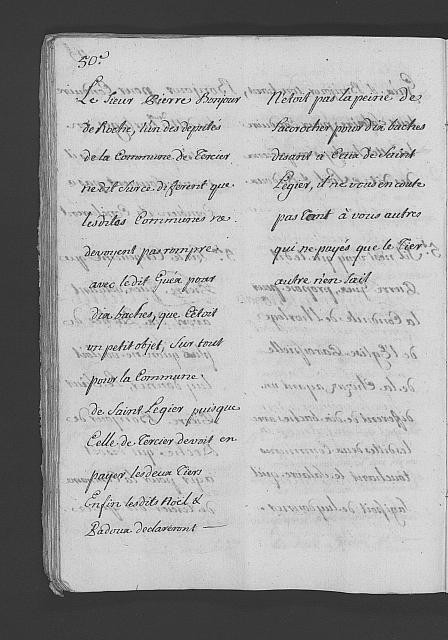 50.e
Le Sieur Pierre Bonjour
de Roche, l'un des deputés
de la Commune de Tercier
ne dit Surce diferent que
lesdites Communes ne
devoyent pas rompre
avec ledit Guéx pour
dix baches, que C'etoit
un petit objet, Sur tout
pour la Commune
de Saint Legier puisque
Celle de Tercier devoit en
payer les deux Tiers
Enfin lesdits Noël &
Badoux declareront —
N'etoit pas la peine de
Sacrocher pour dix baches
disant à Ceux de Saint
Légier, il ne vous en coute
pas Tant à vous autres
qui ne payés que le Tier
autre n'en Sait